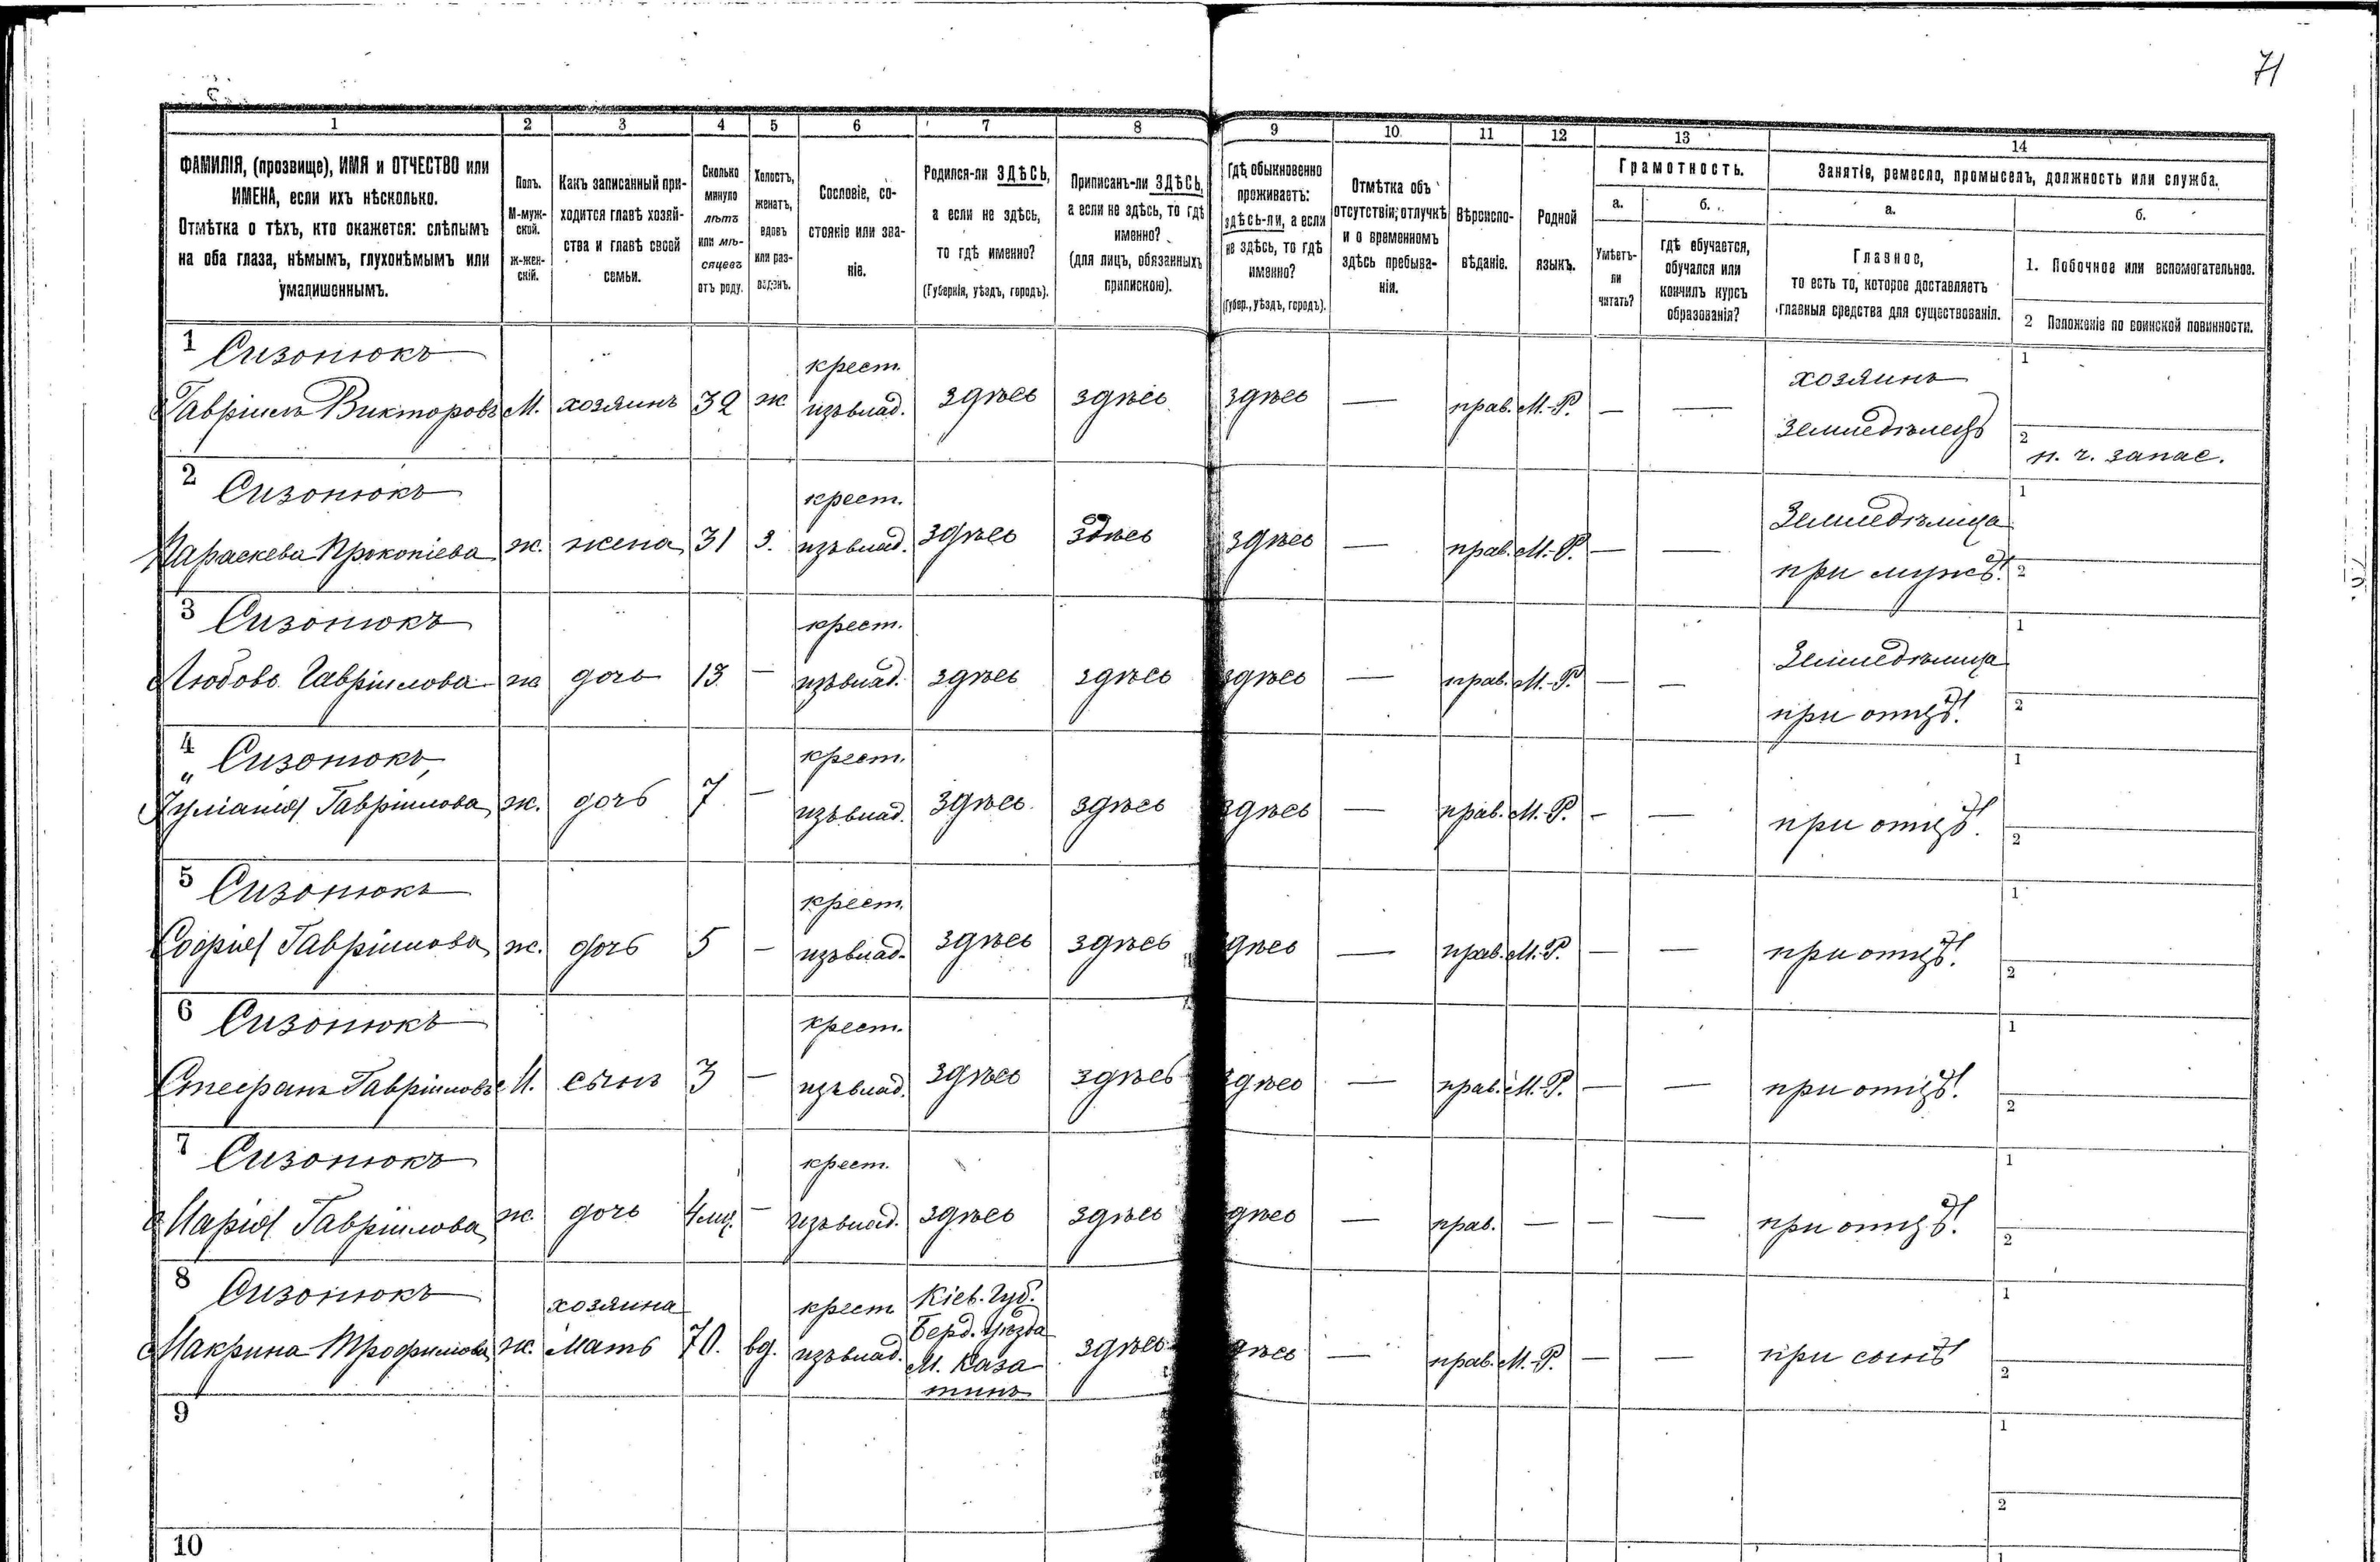 71
1 2 3 4 5 6 7 8 9 10 11 12 13 14
ФАМИЛІЯ, (прозвище), ИМЯ и ОТЧЕСТВО или
ИМЕНА, если ихъ нѣсколько.
Отмѣтка о тѣхъ, кто окажется: слѣпымъ
на оба глаза, нѣмымъ, глухонѣмымъ или
умалишеннымъ.
Полъ.
М-муж-
ской.
ж-жен-
скій.
Какъ записанный при-
ходится главѣ хозяй-
ства и главѣ своей
семьи.
Сколько
минуло
лѣтъ
или мѣ-
сяцевъ
отъ роду.
Холостъ,
женатъ,
вдовъ
или раз-
веденъ.
Сословіе, со-
стояніе или зва-
ніе.
Родился-ли ЗДѢСЬ,
а если не здѣсь,
то гдѣ именно?
(Губернія, уѣздъ, городъ).
Приписанъ-ли ЗДѢСЬ,
а если не здѣсь, то гдѣ
именно?
(для лицъ, обязанныхъ
припискою).
Гдѣ обыкновенно
проживаетъ:
здѣсь-ли, а если
не здѣсь, то гдѣ
именно?
(Губер., уѣздъ, городъ).
Отмѣтка объ
отсутствіи, отлучкѣ
и о временномъ
здѣсь пребыва-
ніи.
Вѣроиспо-
вѣданіе.
Родной
языкъ.
Грамотность.
а.
Умѣетъ-
ли
читать?
б.
гдѣ обучается,
обучался или
кончилъ курсъ
образованія?
Занятіе, ремесло, промыселъ, должность или служба.
а.
Главное,
то есть то, которое доставляетъ
главныя средства для существованія.
б.
1. Побочное или вспомогательное.
2 Положеніе по воинской повинности.
1 Сизонюкъ крест. хозяинъ 1
Гавріилъ Викторовъ М. хозяинъ 32 ж изъ влад. здѣсь здѣсь здѣсь — прав. М.-Р. — — земледѣлецъ
2 н. ч. запас.
2 Сизонюкъ крест. Земледѣлица 1
Параскева Прокопіева ж. жена 31 з. изъ влад. здѣсь здѣсь здѣсь — прав. М.-Р. — — при мужѣ 2
3 Сизонюкъ крест. Земледѣлица 1
Любовь Гавріилова ж дочь 13 — изъ влад. здѣсь здѣсь здѣсь — прав. М.-Р. — — при отцѣ. 2
4 Сизонюкъ крест. 1
Іуліанія Гавріилова ж. дочь 7 — изъ влад. здѣсь здѣсь здѣсь — прав. М.-Р. — — при отцѣ. 2
5 Сизонюкъ крест. 1
Софія Гавріилова ж. дочь 5 — изъ влад. здѣсь здѣсь здѣсь — прав. М.-Р. — — при отцѣ. 2
6 Сизонюкъ крест. 1
Стефанъ Гавріиловъ М. сынъ 3 — изъ влад. здѣсь здѣсь здѣсь — прав. М.-Р. — — при отцѣ. 2
7 Сизонюкъ крест. 1
Марія Гавріилова ж. дочь 4 мц. — изъ влад. здѣсь здѣсь здѣсь — прав. — — — при отцѣ. 2
8 Сизонюкъ хозяина крест Кіев. Губ. 1
Макрина Трофимова ж. мать 70. вд. изъ влад. Берд. уѣзда здѣсь здѣсь — прав. М.-Р. — — при сынѣ 2
М. Каза
тинъ
9 1
2
10 1